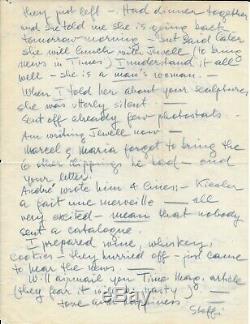 they just left – Had dinner together
and she told me she is going back
tomorrow morning – but said later
she will lunch with Jewell (to bring
news in Times) I understand it all
well – she is a man's woman –
When I told her about your sculptures,
she was utterly silent.
Sent off already few photostats.
Am writing Jewell now –
Marcel & Maria forgot to bring the
6 other clippings he had – and
your letter.
André wrote him 4 lines – Kiesler
a fait une merveille – all
very excited – mean that nobody
sent a catalogue.
I prepared wine, whiskey,
cookies – they hurried off – just came
to hear the news.
Will airmail you Time Mag. article
(they fear it is) party
love and happiness
Steffi